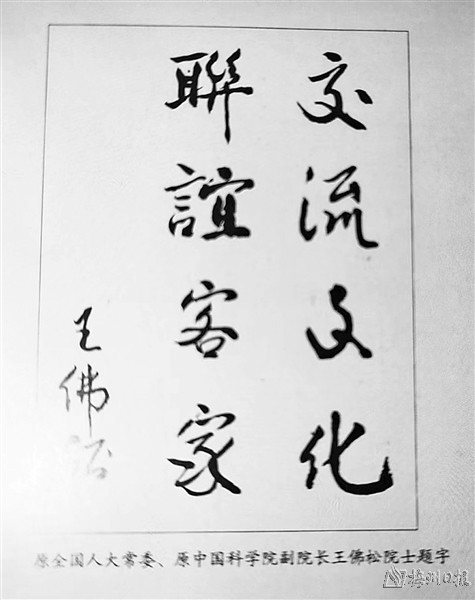 交流文化
聯誼客家
王佛松
原全国人大常委、原中国科学院副院长王佛松院士题字
梅州日报